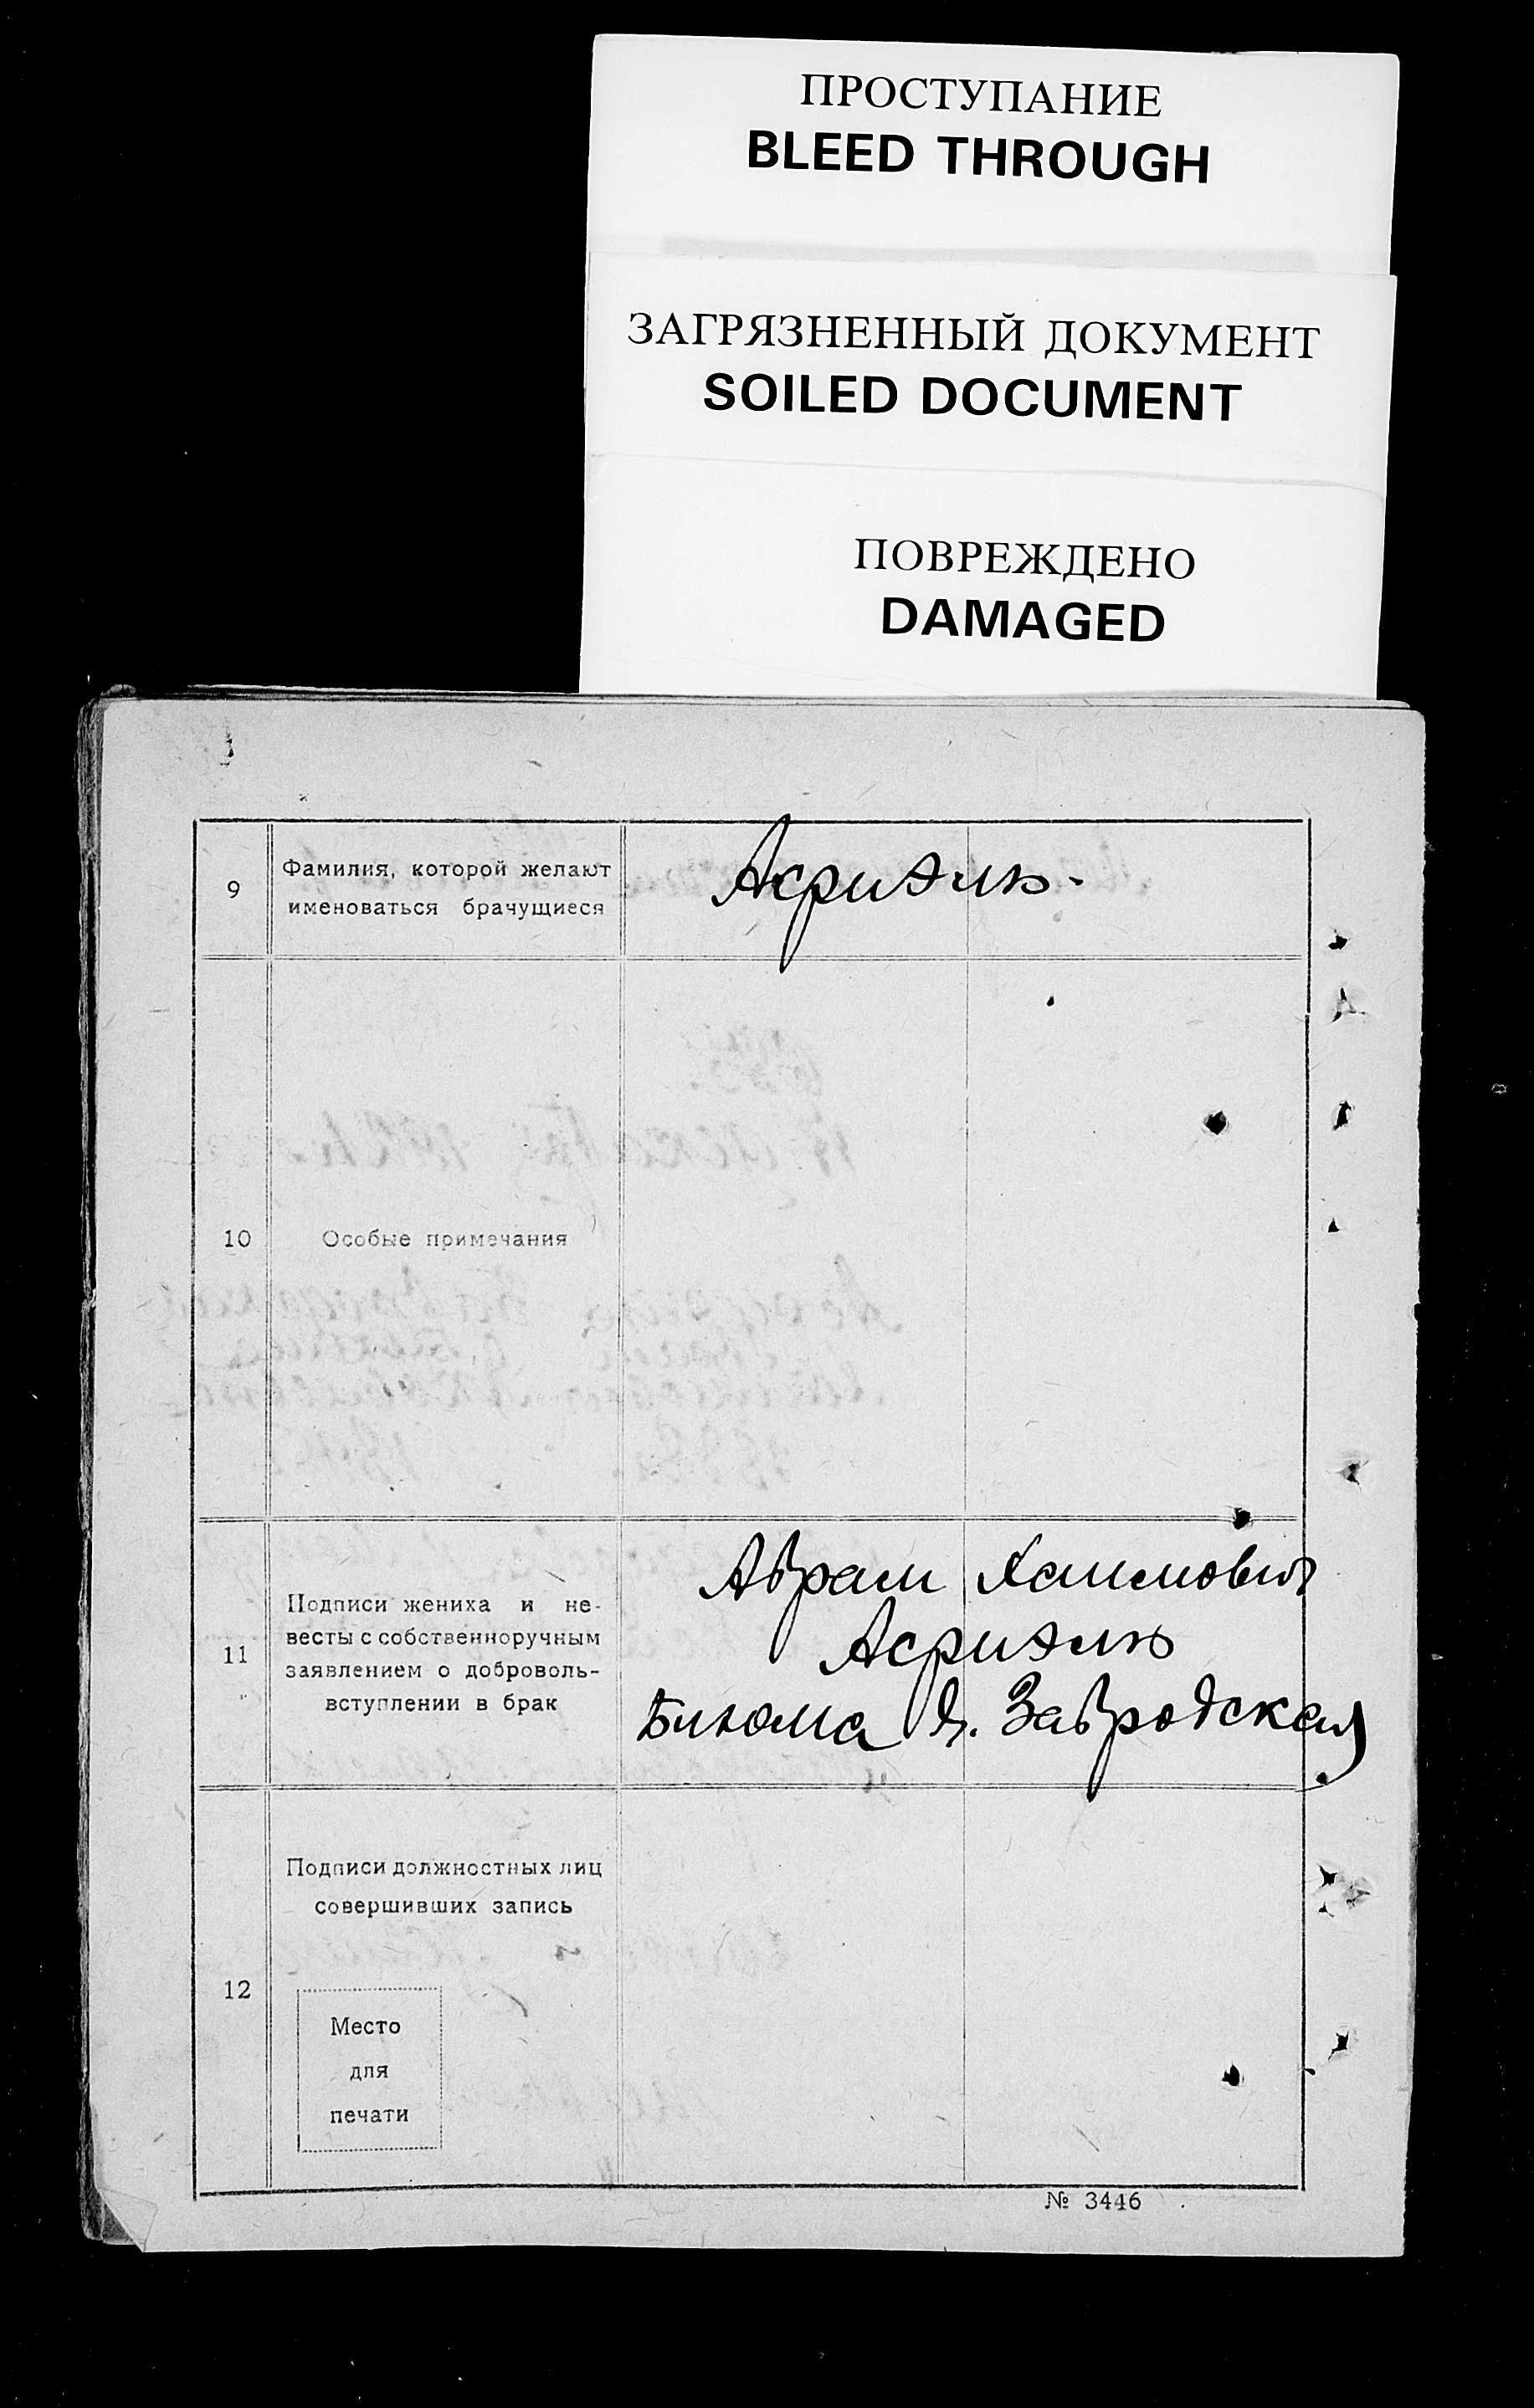 ПРОСТУПАНИЕ
BLEED THROUGH
ЗАГРЯЗНЕННЫЙ ДОКУМЕНТ
SOILED DOCUMENT
ПОВРЕЖДЕНО
DAMAGED
9
Фамилия, которой желают
именоваться брачущиеся
10
Особые примечания
11
Подписи жениха и не-
весты с собственноручным
заявлением о доброволь-
вступлении в брак
Абрам Хаимович
Завродская
12
Подписи должностных лиц
совершивших запись
Место
для
печати
№ 3446